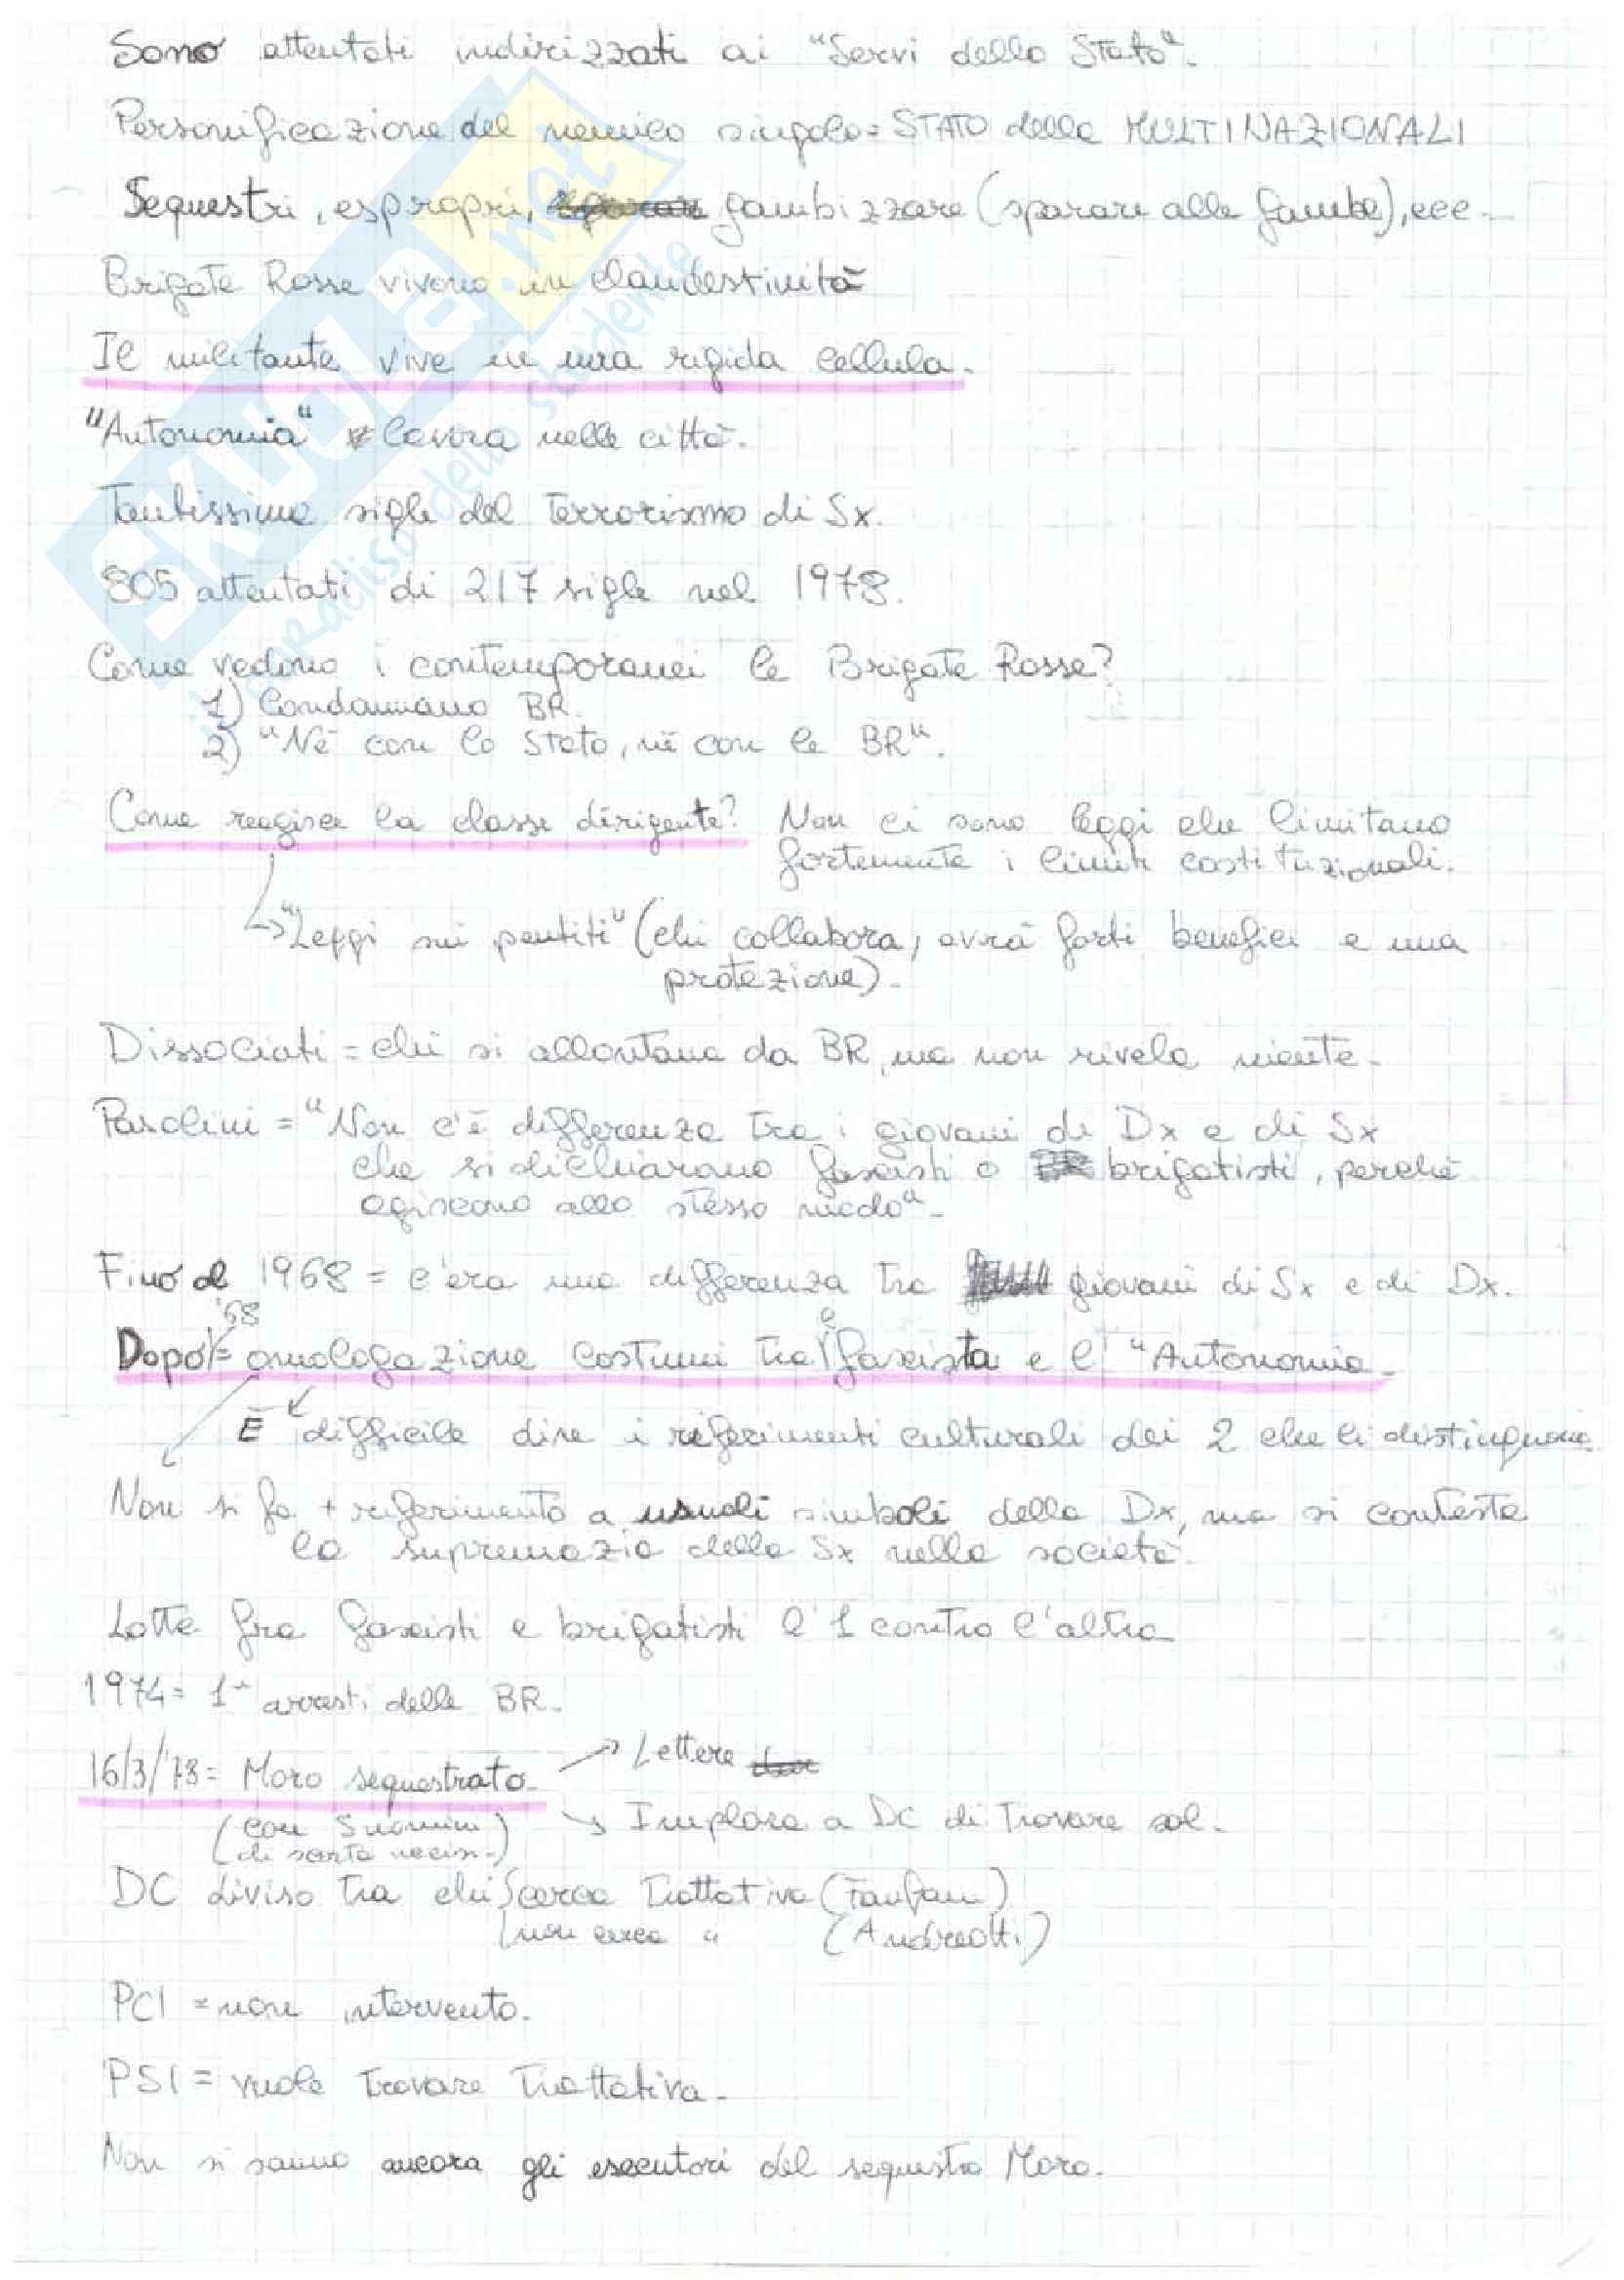 Sono attentati indirizzati ai "Servi dello Stato".
Personificazione del nemico singolo = STATO della MULTINAZIONALI
Sequestri, espropri, gambizzare (sparare alle gambe), ecc.
Brigate Rosse vivono in clandestinità
Il militante vive in una rigida cellula.
"Autonomia" lavora nelle città.
Tantissime sigle del Terrorismo di Sx.
805 attentati di 217 sigle nel 1978.
Come vedono i contemporanei le Brigate Rosse?
1) Condannano BR.
2) "Né con lo Stato, né con le BR".
Come reagisce la classe dirigente? Non ci sono leggi che limitano
fortemente i limiti costituzionali.
"Leggi sui pentiti" (chi collabora, avrà forti benefici e una
protezione).
Dissociati = chi si allontana da BR, ma non rivela niente.
Pasolini = "Non c'è differenza tra i giovani di Dx e di Sx
che si dichiarano fascisti o brigatisti, perché
agiscono allo stesso modo".
Fino al 1968 = c'era una differenza tra giovani di Sx e di Dx.
Dopo '68 = omologazione costumi tra il fascista e l'"Autonomia.
È difficile dire i riferimenti culturali dei 2 che li distinguono.
Non si fa + riferimento a usuali simboli della Dx, ma si contesta
la supremazia della Sx nella società.
Lotte fra fascisti e brigatisti l'1 contro l'altro
1974 = 1ⁱ arresti delle BR.
16/3/'78 = Moro sequestrato. → Lettere
(con 5 uomini → Implora a DC di Trovare sol.
di scorta uccisi)
DC diviso tra chi cerca Trattativa (Fanfani)
non cerca " (Andreotti)
PCI = non intervento.
PSI = vuole Trovare Trattativa.
Non si sanno ancora gli esecutori del sequestro Moro.
SKUOLA.net
il paradiso dello studente